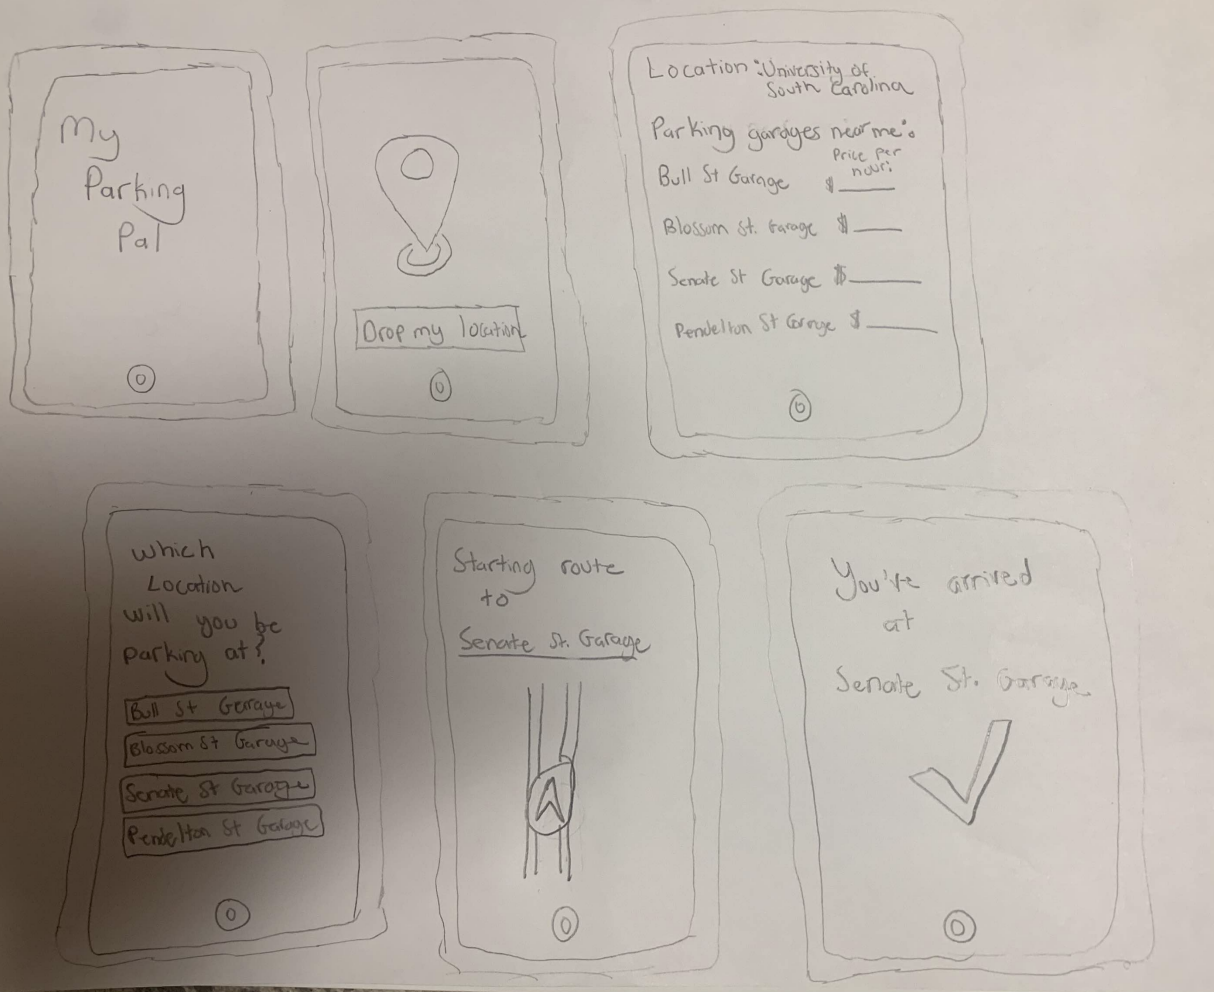 My
Parking
Pal
Drop my location
Location: University of
South Carolina
Parking garages near me:
Price per
hour:
Bull St Garage $
Blossom St. Garage $
Senate St Garage $
Pendelton St Garage $
Which
Location
will you be
parking at?
Bull St Garage
Blossom St Garage
Senate St Garage
Pendelton St Garage
Starting route
to
Senate St. Garage
You've arrived
at
Senate St. Garage